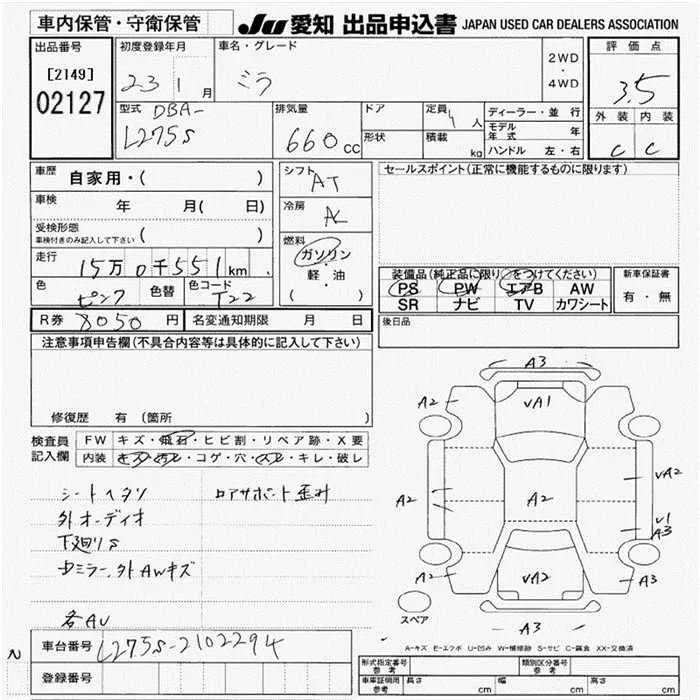 車内保管・守衛保管
JU 愛知 出品申込書 JAPAN USED CAR DEALERS ASSOCIATION
出品番号
[2149]
02127
初度登録年月
23 1月
車名・グレード
ミラ
2WD
・
4WD
評価点
3.5
外装 内装
C C
型式 DBA-
L275S
排気量
660cc
ドア
形状
定員 4人
積載 kg
ディーラー・並行
モデル年式 年
ハンドル 左・右
車歴 自家用・( )
車検 年 月( 日)
受検形態
車検付きのみ記入して下さい ( )
走行 15万0千551km
色 ピンク 色替 色コード T22
シフト AT
冷房 AC
燃料
ガソリン
・
軽・油
( )
セールスポイント(正常に機能するものに限ります)
装備品(純正品に限り○をつけてください)
PS PW エアB AW
SR ナビ TV カワシート
新車保証書
有・無
後日品
R券 8050円 名変通知期限 月 日
注意事項申告欄(不具合内容等は具体的に記入して下さい)
修復歴 有 (箇所 )
検査員
記入欄
FW キズ・飛石・ヒビ割・リペア跡・X要
内装 キズ・汚レ・コゲ・穴・スレ・キレ・破レ
シートヘタリ ロアサポート歪み
外オーディオ
下廻りS
Dミラー、外AWキズ
各AU
A3
A2
VA1
A2
A2
VA2
V1
A3
A2
VA2
A3
A3
スペア
A-キズ E-エクボ U-凹み W-補修跡 S-サビ C-腐食 XX-交換済
N
車台番号 L275S-2102294
登録番号
形式指定番号
参考
類別区分番号
参考
車庫証明用
参考
長さ cm 幅 cm 高さ cm